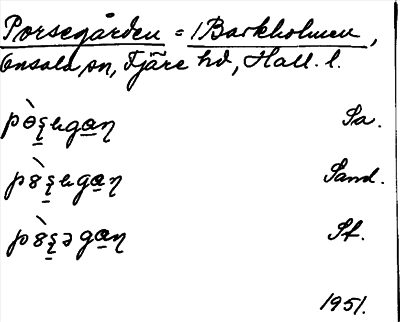 Porsegården = 1 Barkholmen,
Onsala sn, Fjäre hd, Hall. l.
pò̠s̠ega̠n Sa.
p8̀s̠ega̠n Sand.
p8̀s̠əga̠n St.
1951.